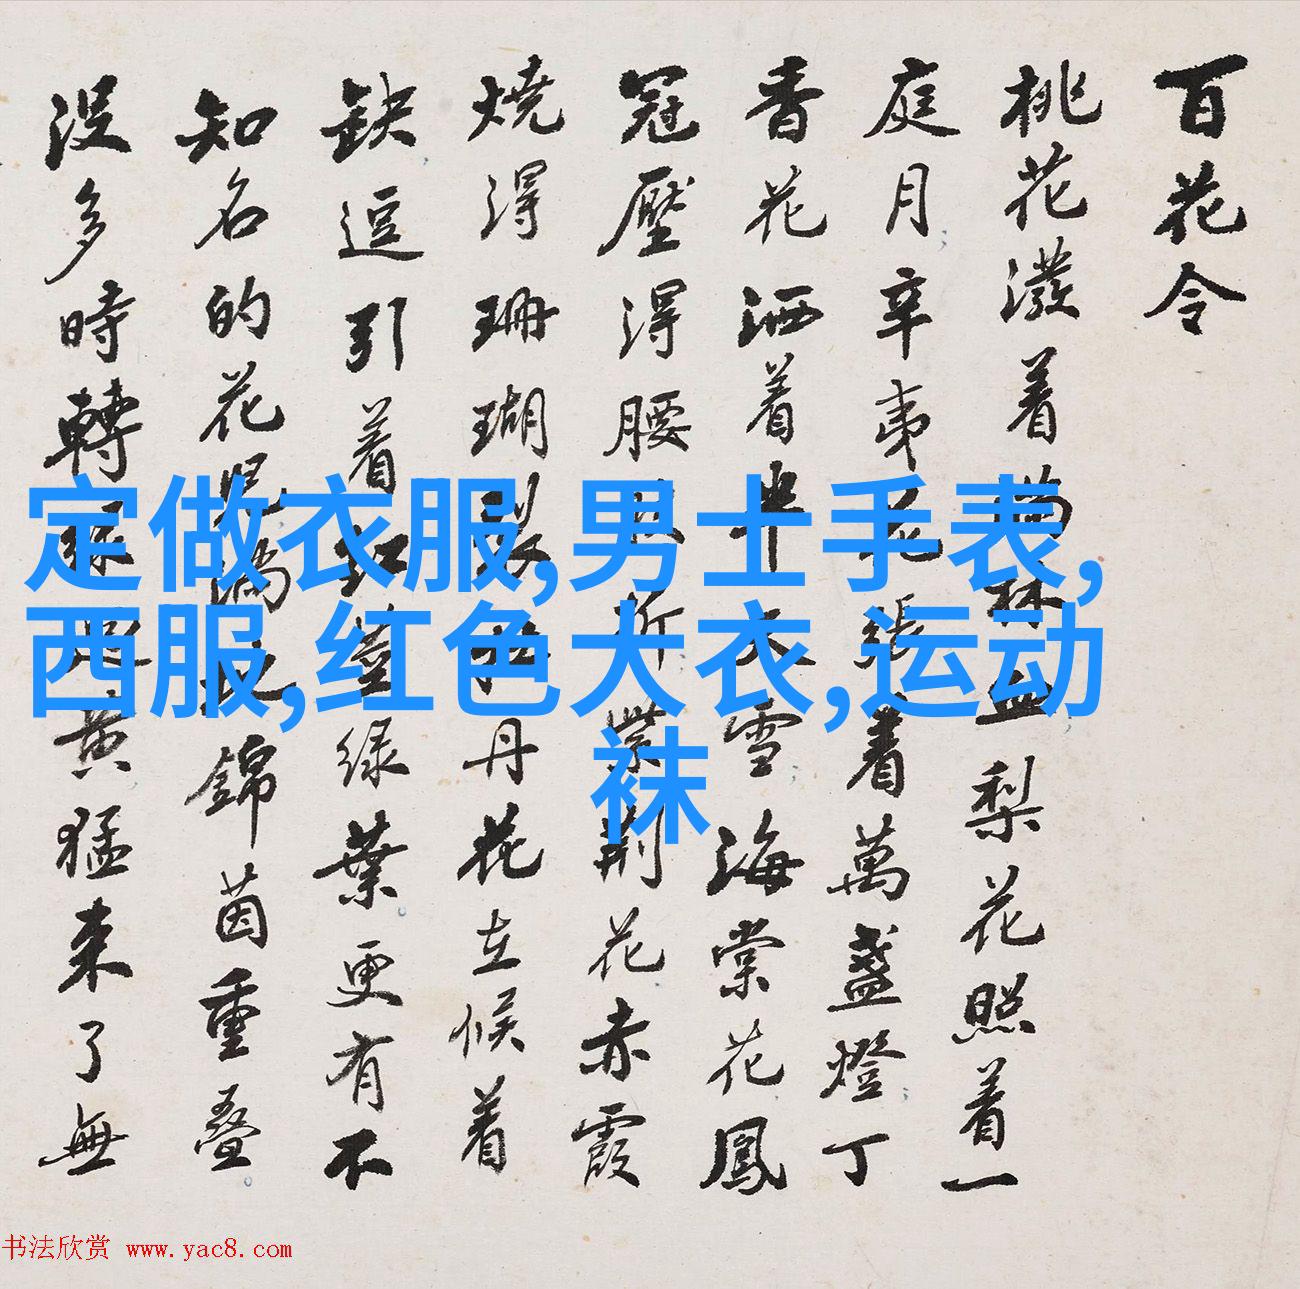 百花令
桃花潑着滿林血梨花照着一
庭月辛夷花張着萬盞燈丁
香花洒着半天雪海棠花鳳
冠壓得腰折紫荆花赤霞
燒得珊瑚裂丹花立候着
缺逗引着紅綠葉更有不
知名的花兒滿地錦茵重叠
没多時轉綠黄猛来了無
定做衣服,男士手表,
西服,红色大衣,运动
袜
书法欣赏 www.yac8.com